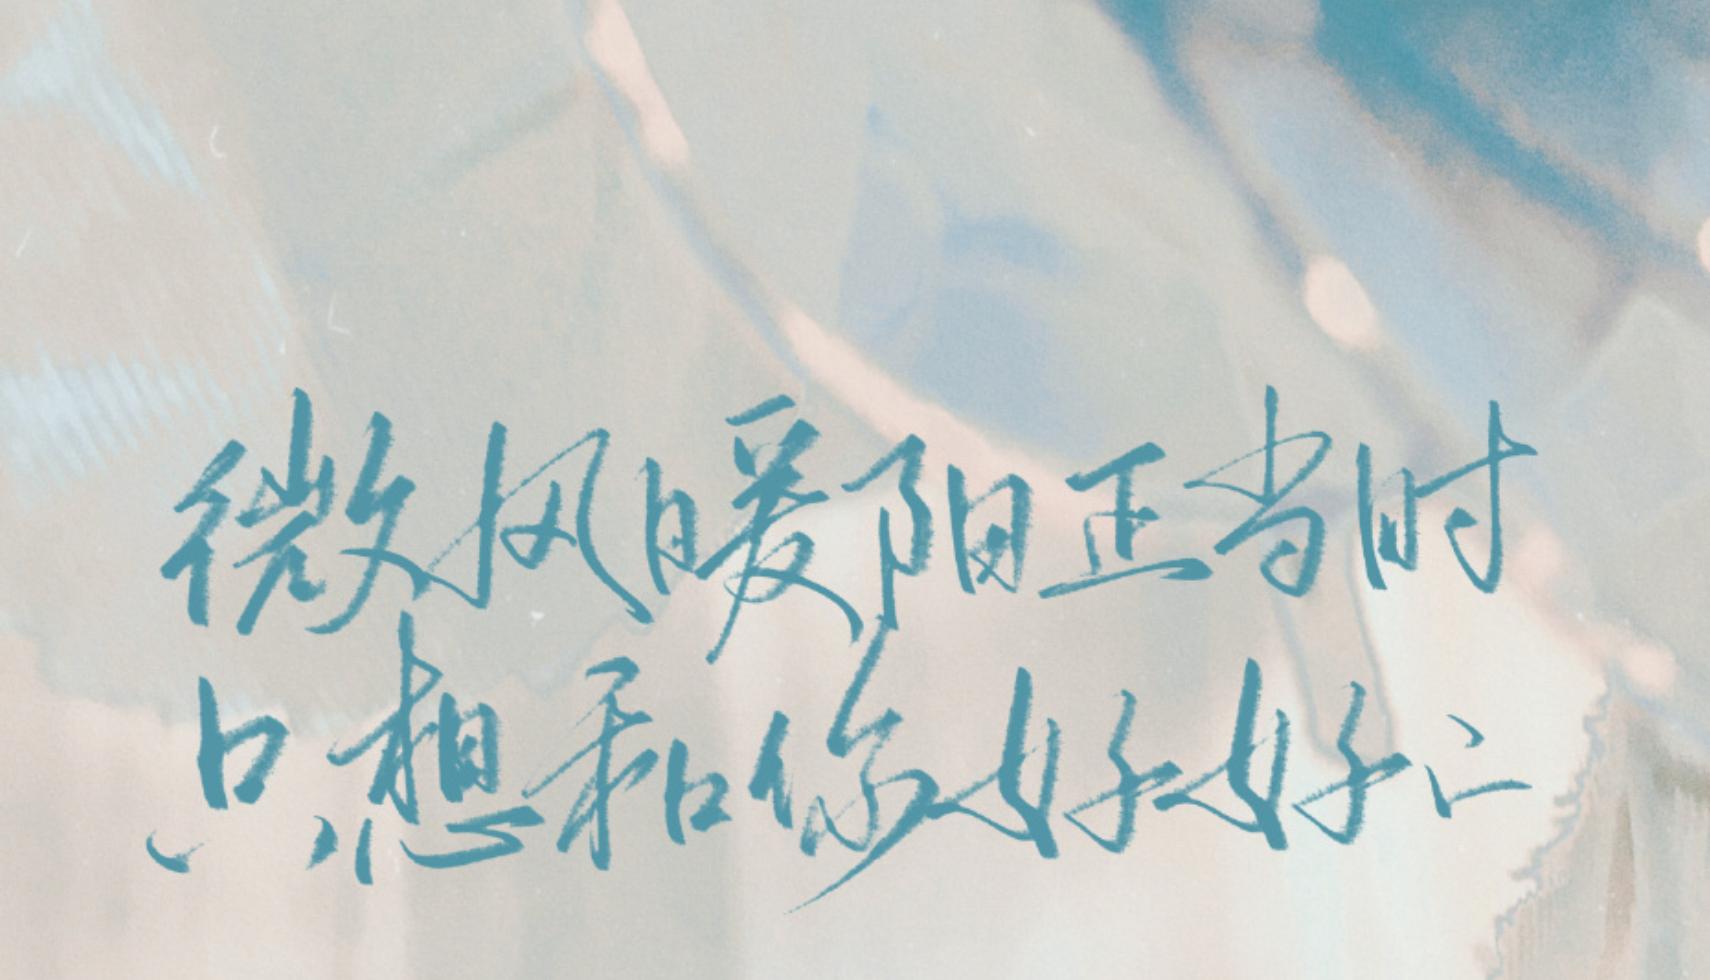 微风暖阳正当时
只想和你好好